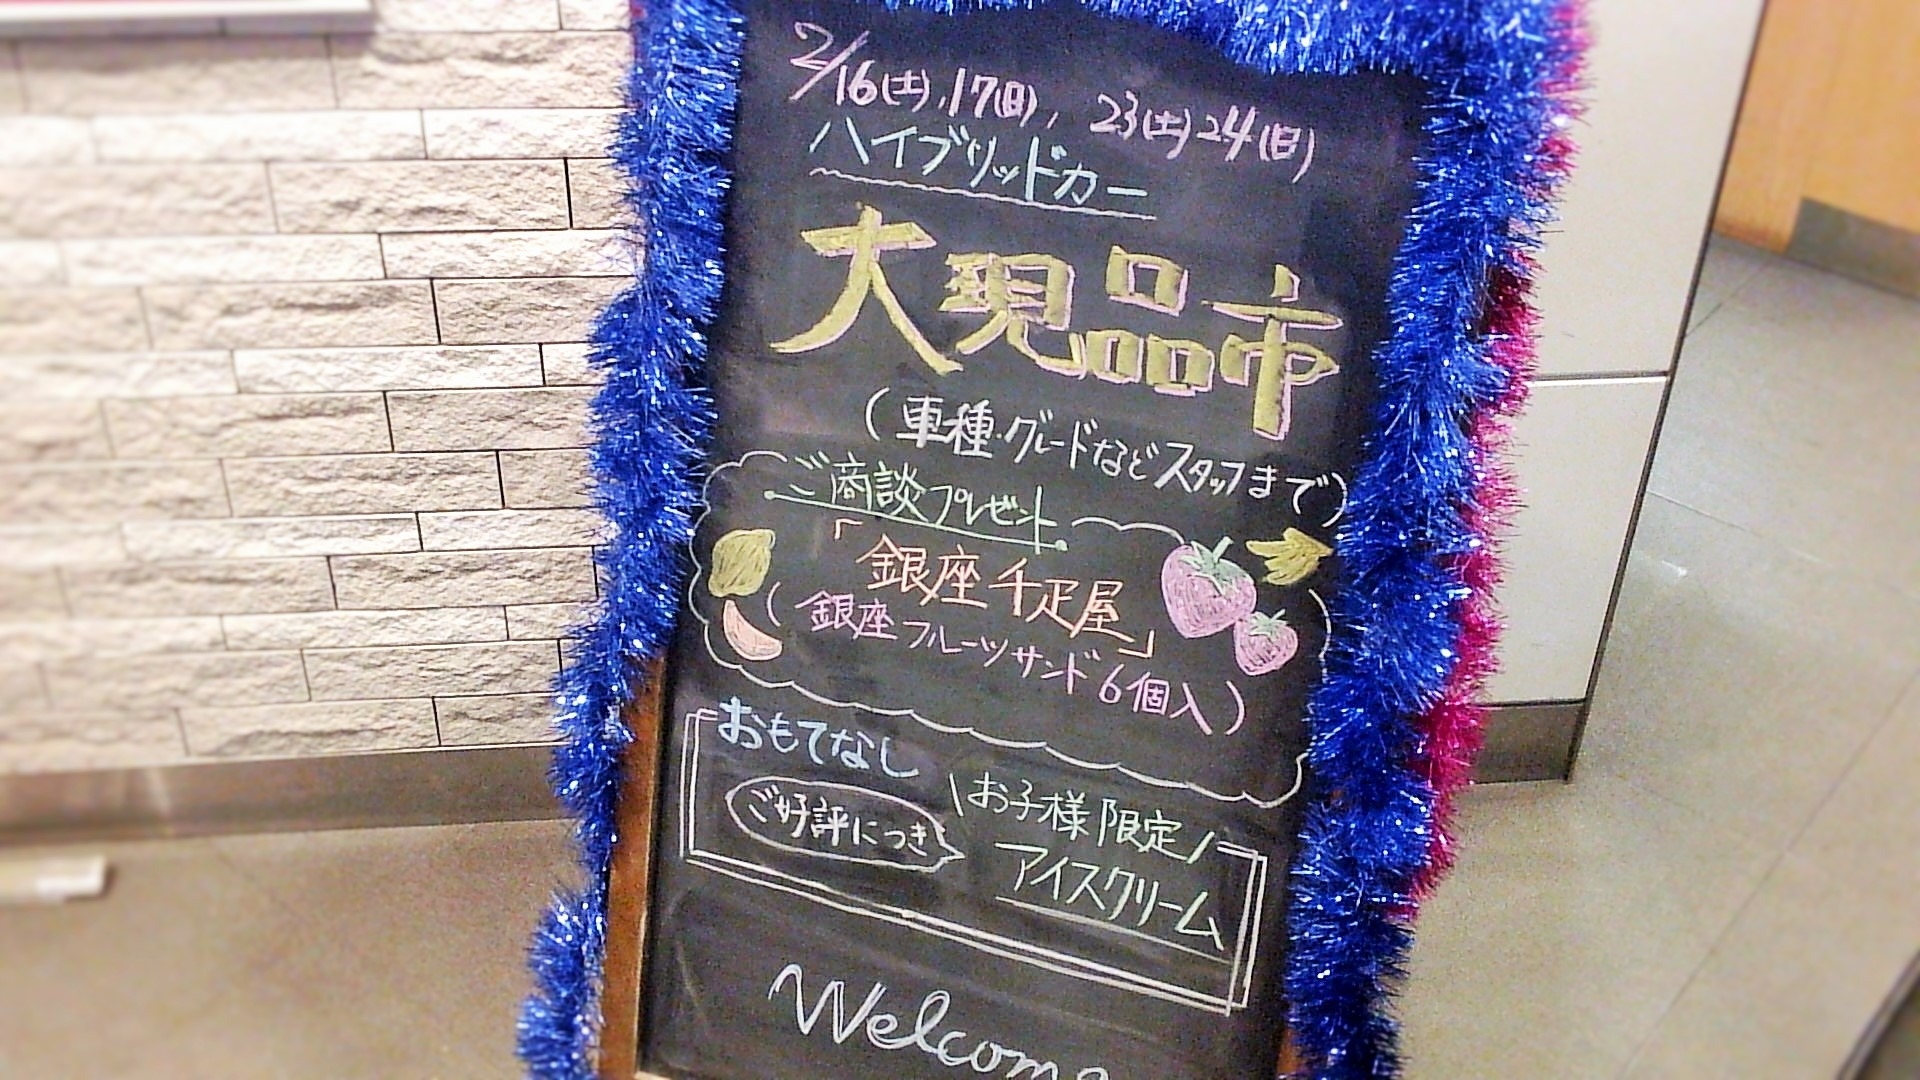 2/16(土),17(日), 23(土)24(日)
ハイブリッドカー
大現品市
(車種・グレードなどスタッフまで)
ご商談プレゼント
「銀座千疋屋」
(銀座フルーツサンド6個入)
おもてなし
ご好評につき
\お子様限定/
アイスクリーム
Welcome